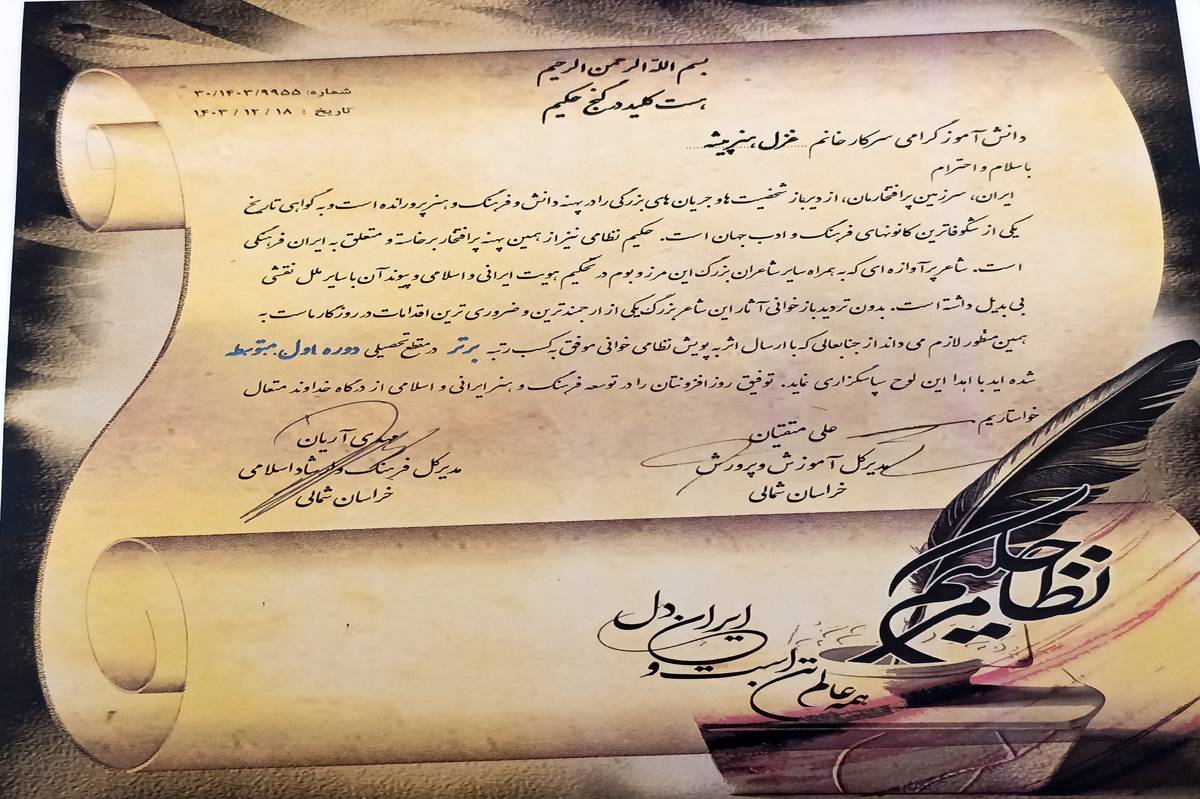 بسم الله الرحمن الرحیم
هست کلید در گنج حکیم
شماره: ۳۰/۱۴۰۳/۹۹۵۵
تاریخ : ۱۴۰۳/۱۲/۱۸
دانش آموز گرامی سرکار خانم غزل هنرپیشه
با سلام و احترام
ایران، سرزمین پرافتخارمان، از دیرباز شخصیت ها و جریان های بزرگی را در پهنه دانش و فرهنگ و هنر پرورانده است و به گواهی تاریخ
یکی از شکوفاترین کانونهای فرهنگ و ادب جهان است. حکیم نظامی نیز از همین پهنه پرافتخار برخاسته و متعلق به ایران فرهنگی
است. شاعر پرآوازه ای که به همراه سایر شاعران بزرگ این مرز و بوم در تحکیم هویت ایرانی و اسلامی و پیوند آن با سایر ملل نقشی
بی بدیل داشته است. بدون تردید بازخوانی آثار این شاعر بزرگ یکی از ارجمندترین و ضروری ترین اقدامات در روزگار ماست به
همین منظور لازم می داند از جنابعالی که با ارسال اثر به پویش نظامی خوانی موفق به کسب رتبه برتر در مقطع تحصیلی دوره اول متوسطه
شده اید با اهدا این لوح سپاسگزاری نماید. توفیق روز افزونتان را در توسعه فرهنگ و هنر ایرانی و اسلامی از درگاه خداوند متعال
خواستاریم.
علی متقیان
مدیرکل آموزش و پرورش
خراسان شمالی
مهدی آریان
مدیرکل فرهنگ و ارشاد اسلامی
خراسان شمالی
حکیم نظامی
همه عالم تن است و
ایران دل